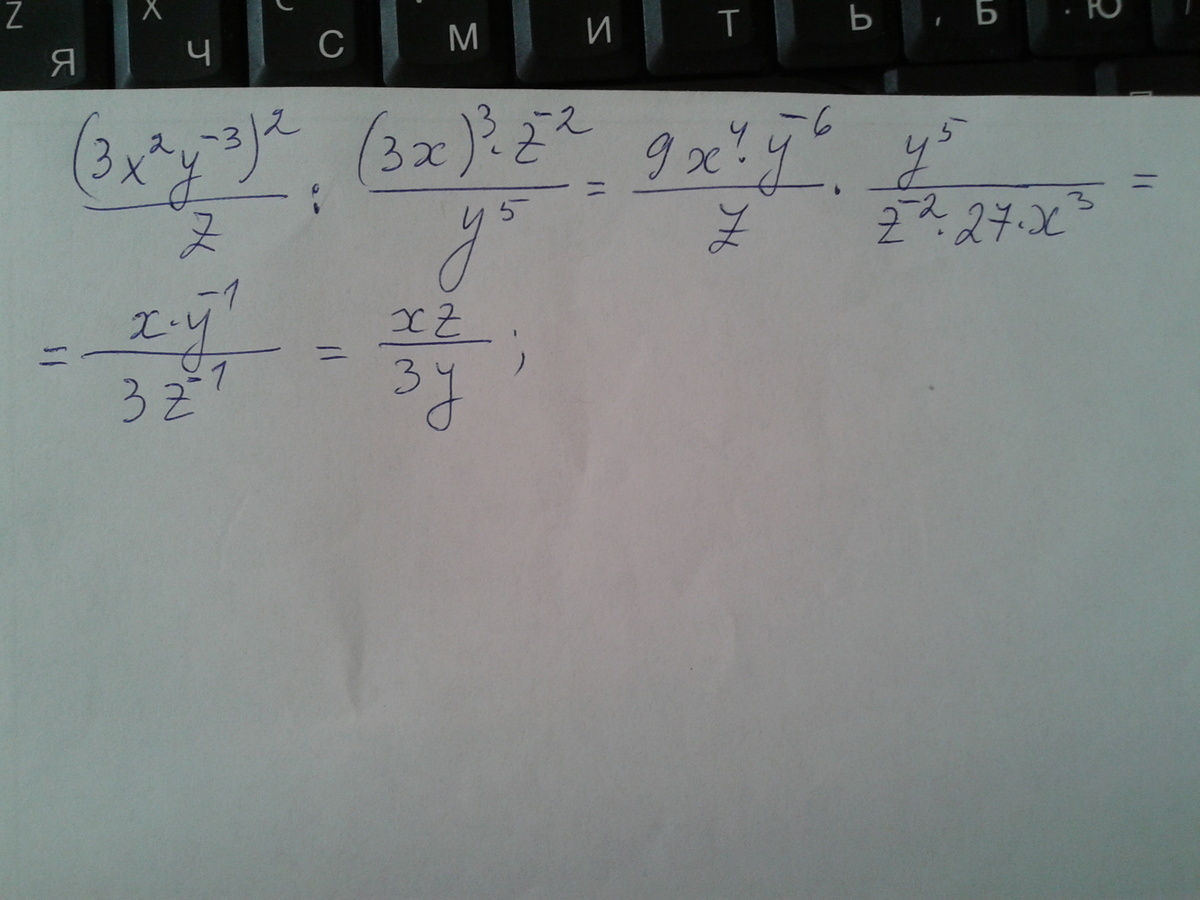 Z X C
Я Ч С М И Т Ь , Б . Ю
(3x²y⁻³)²/z : (3x)³·z⁻²/y⁵ = 9x⁴·y⁻⁶/z · y⁵/z⁻²·27·x³ =
= x·y⁻¹/3z⁻¹ = xz/3y ;